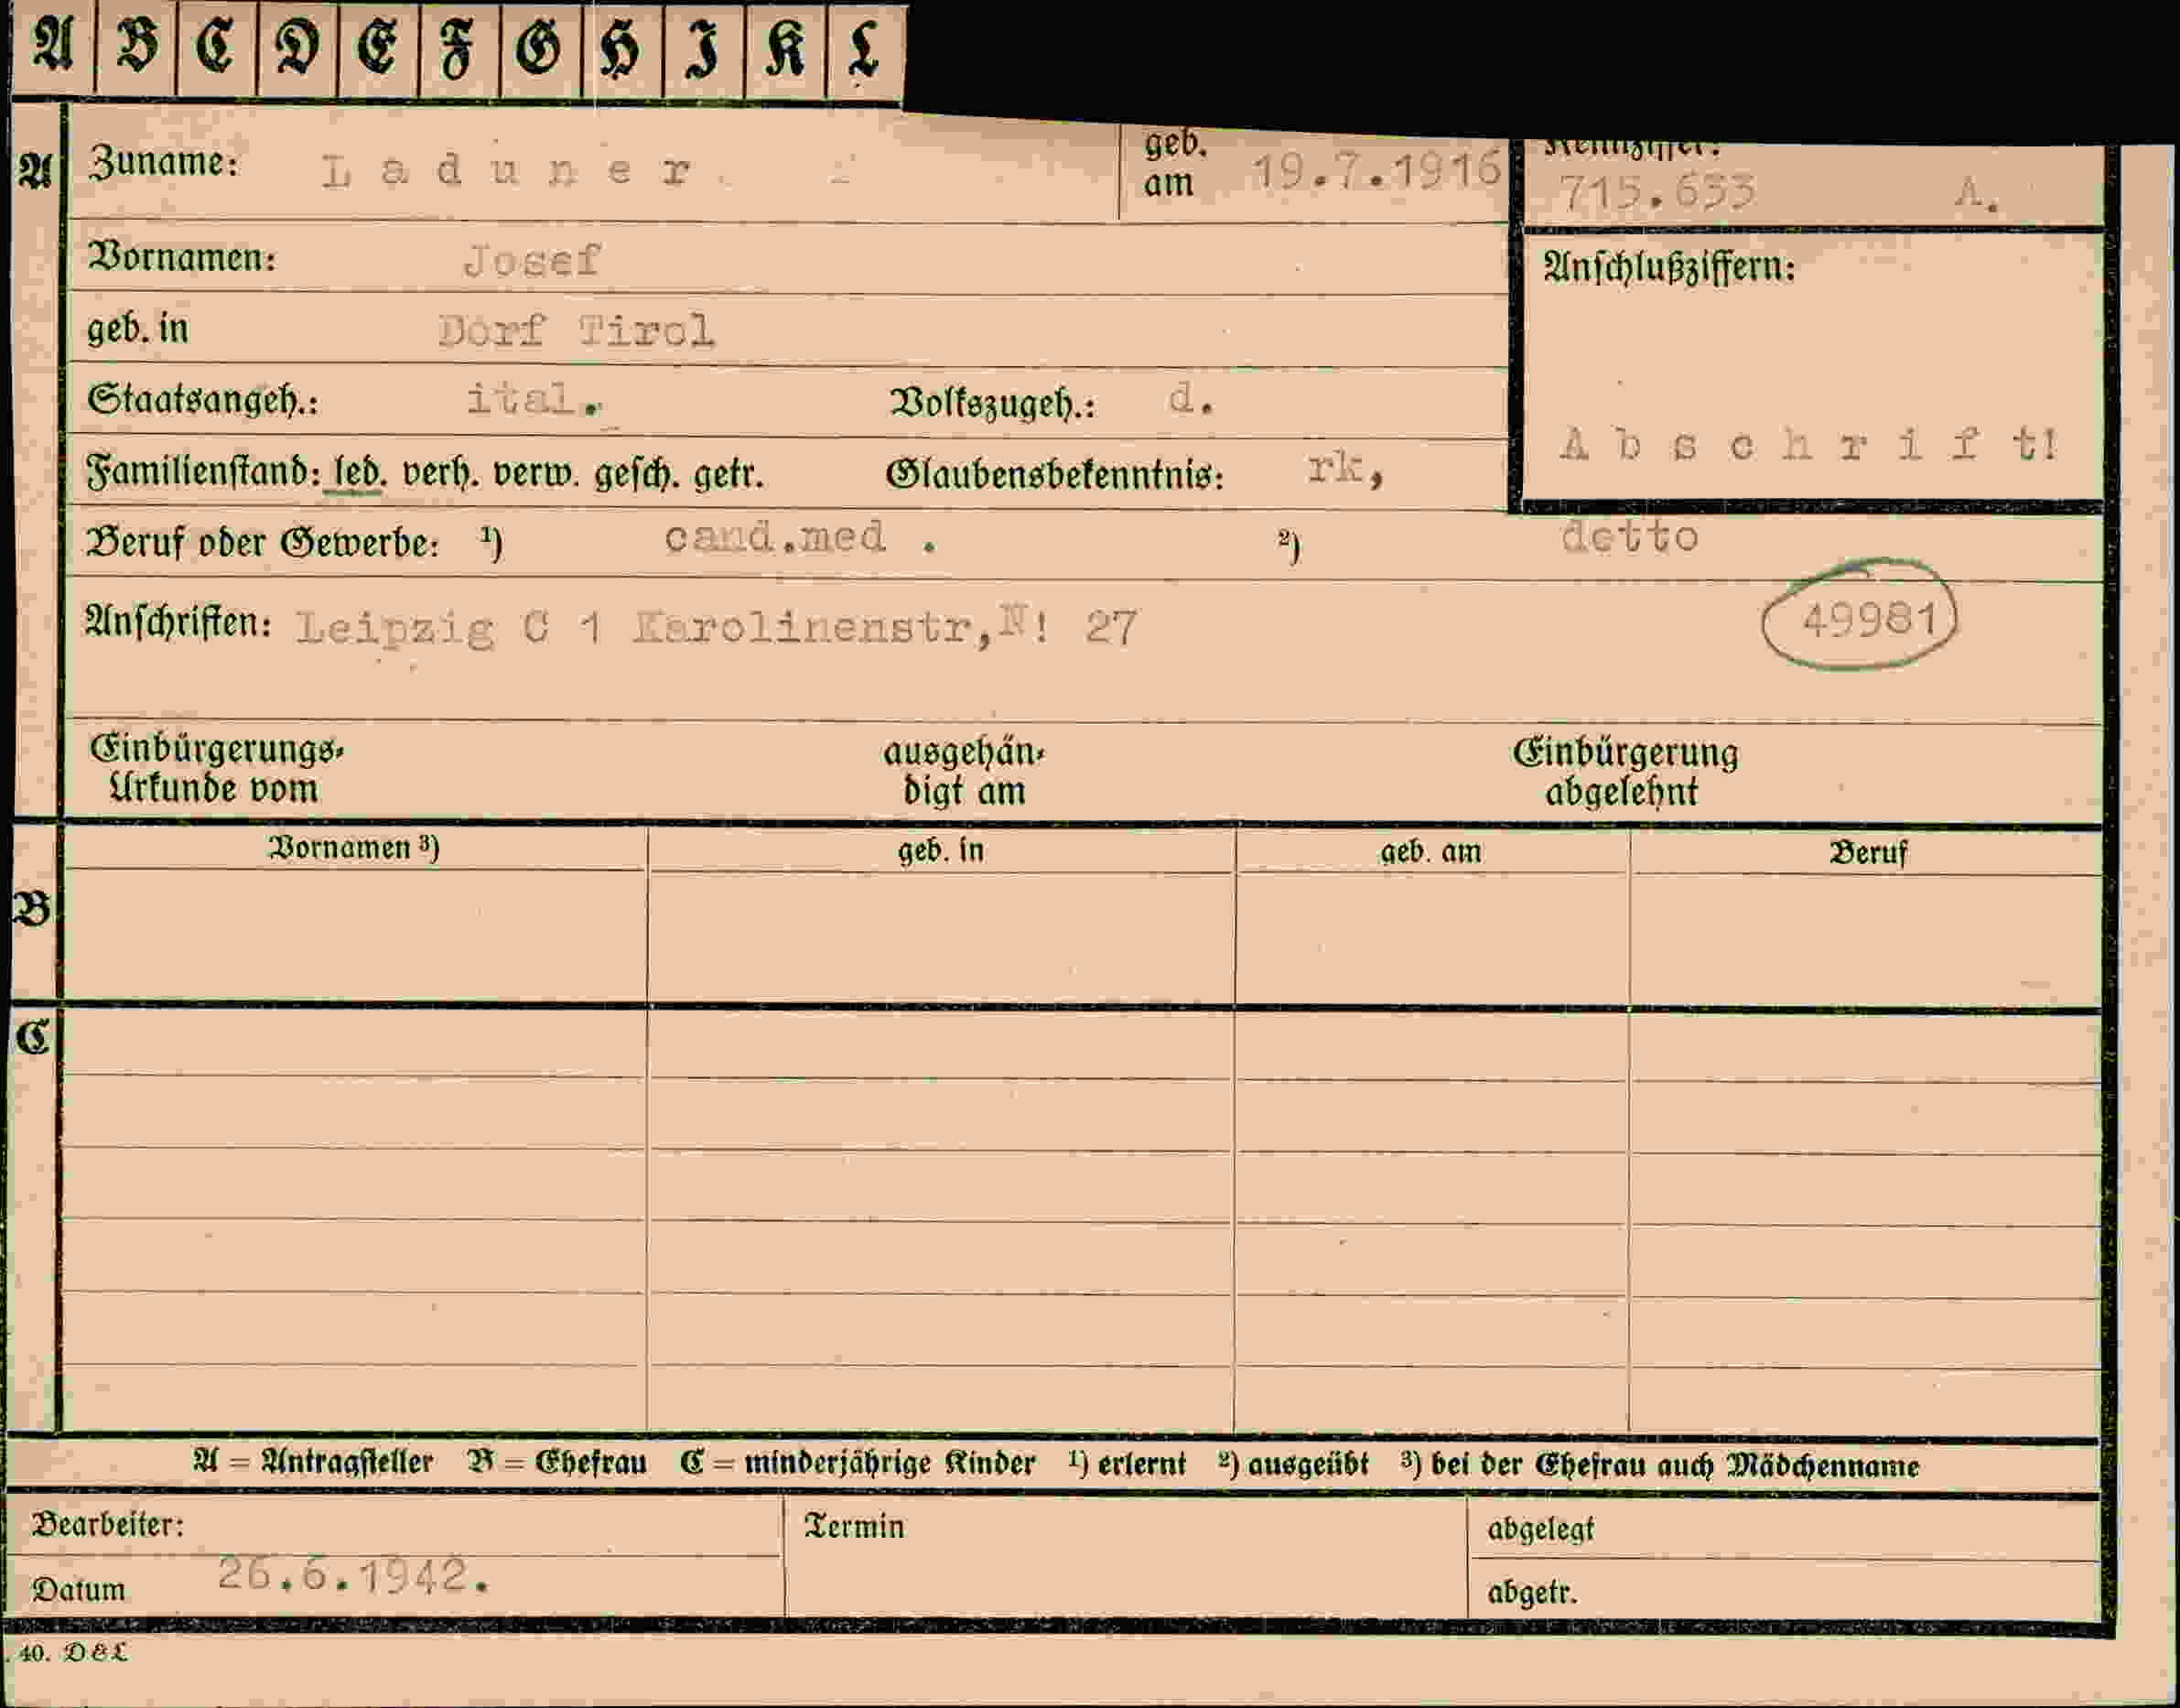 A B C D E F G H I K L
A Zuname: Laduner. geb. am 19.7.1916 Kennziffer: 715.633 A.
Vornamen: Josef Anschlußziffern:
geb. in Dorf Tirol
Staatsangeh.: ital. Volkszugeh.: d.
Abschrift!
Familienstand: led. verh. verw. gesch. getr. Glaubensbekenntnis: rk,
Beruf oder Gewerbe: ¹) cand.med . ²) detto
Anschriften: Leipzig C 1 Karolinenstr,N! 27 49981
Einbürgerungs- ausgehän- Einbürgerung
Urkunde vom digt am abgelehnt
Vornamen ³) geb. in geb. am Beruf
B
C
A = Antragsteller B = Ehefrau C = minderjährige Kinder ¹) erlernt ²) ausgeübt ³) bei der Ehefrau auch Mädchenname
Bearbeiter: Termin abgelegt
Datum 26.6.1942. abgetr.
40. D&L